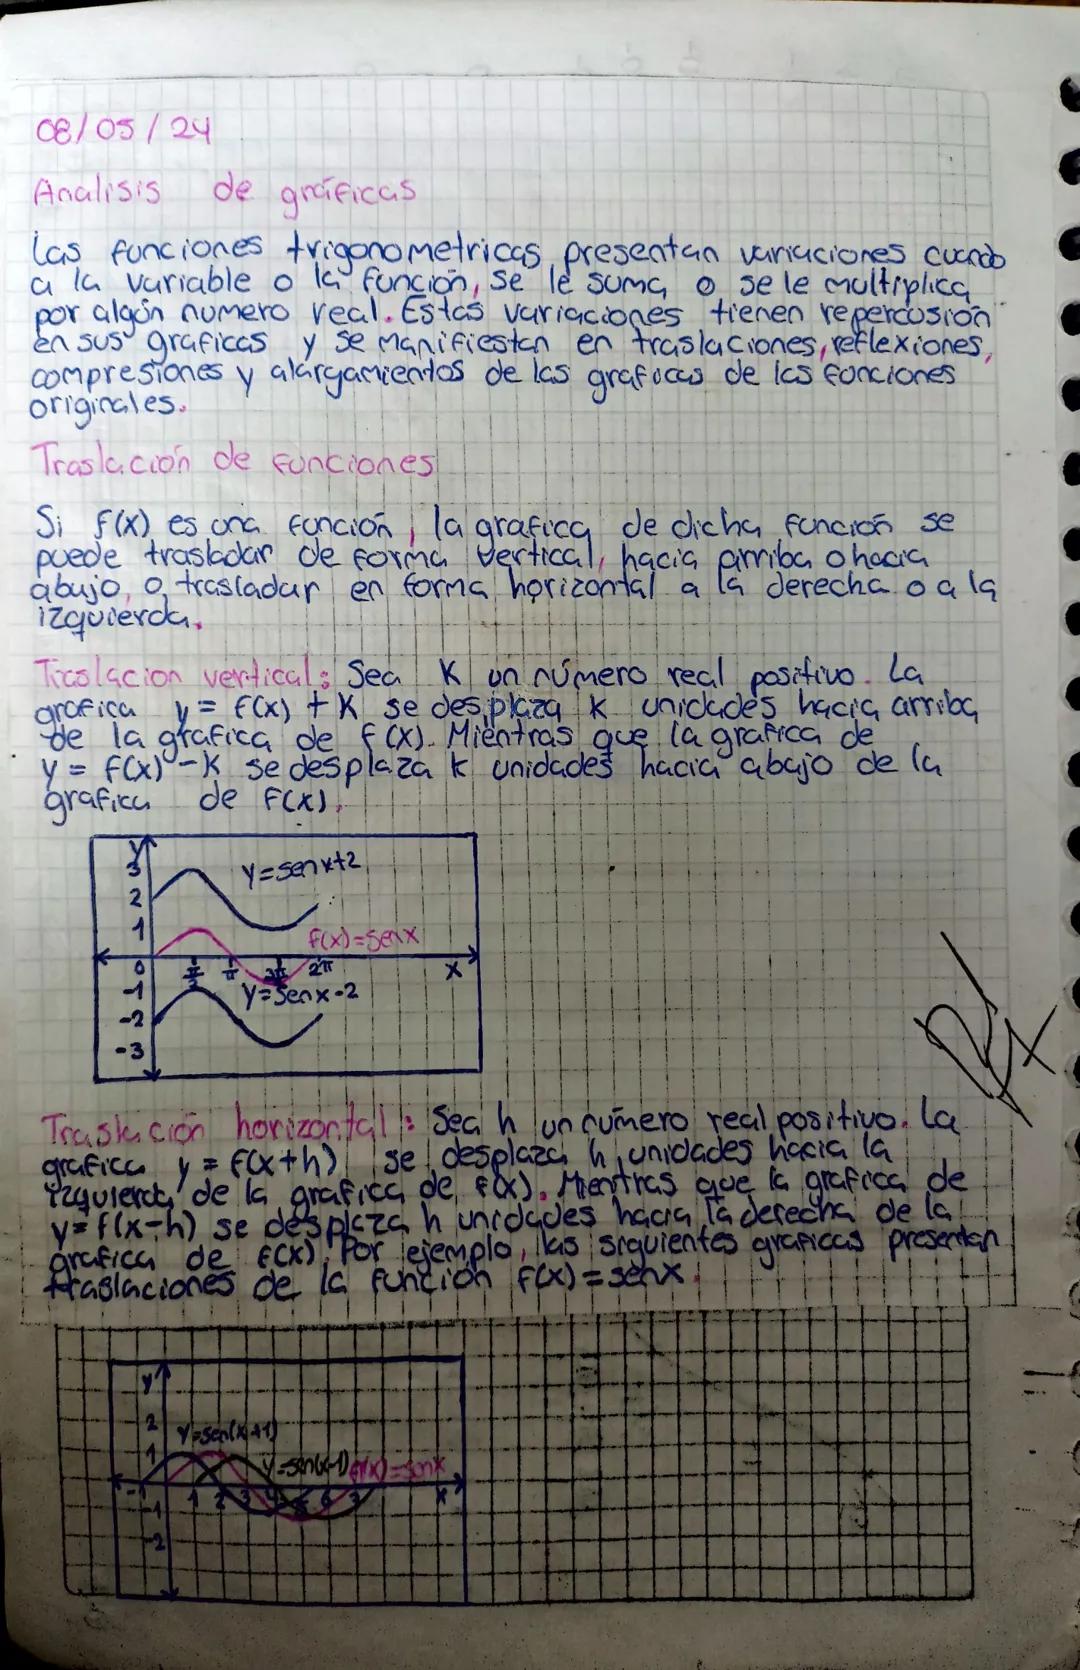 08/05/24
Analisis de gráficas
Las funciones trigonometricas presentan variaciones cuando
a la variable o la función, se le suma o se le multiplica
por algún numero real. Estas variaciones tienen repercusión
en sus graficas y se manifiestan en traslaciones, reflexiones,
compresiones y alargamientos de las graficas de las funciones
originales.
Traslación de funciones
Si f(x) es una función, la grafica de dicha función se
puede trasladar de forma vertical, hacia arriba o hacia
abajo, o trasladar en forma horizontal a la derecha o a la
izquierda.
Traslacion vertical: Sea K un número real positivo. La
grafica y = f(x) + K se desplaza k unidades hacia arriba
de la grafica de f(x). Mientras que la grafica de
y = f(x) - K se desplaza k unidades hacia abajo de la
grafica de f(x).
y
3
y=senx+2
2
1
f(x)=senx
0 π/2 π 3π/2 2π x
-1
y=senx-2
-2
-3
Traslación horizontal: Sea h un número real positivo. La
grafica y = f(x+h) se desplaza h unidades hacia la
izquierda de la grafica de f(x). Mientras que la grafica de
y= f(x-h) se desplaza h unidades hacia la derecha de la
grafica de f(x). Por ejemplo, las siguientes graficas presentan
traslaciones de la función f(x)=senx.
y
2
y=sen(x+1)
1
y=sen(x-1) f(x)=senx
-1 1 2 3 4 5 6 x
-1
-2